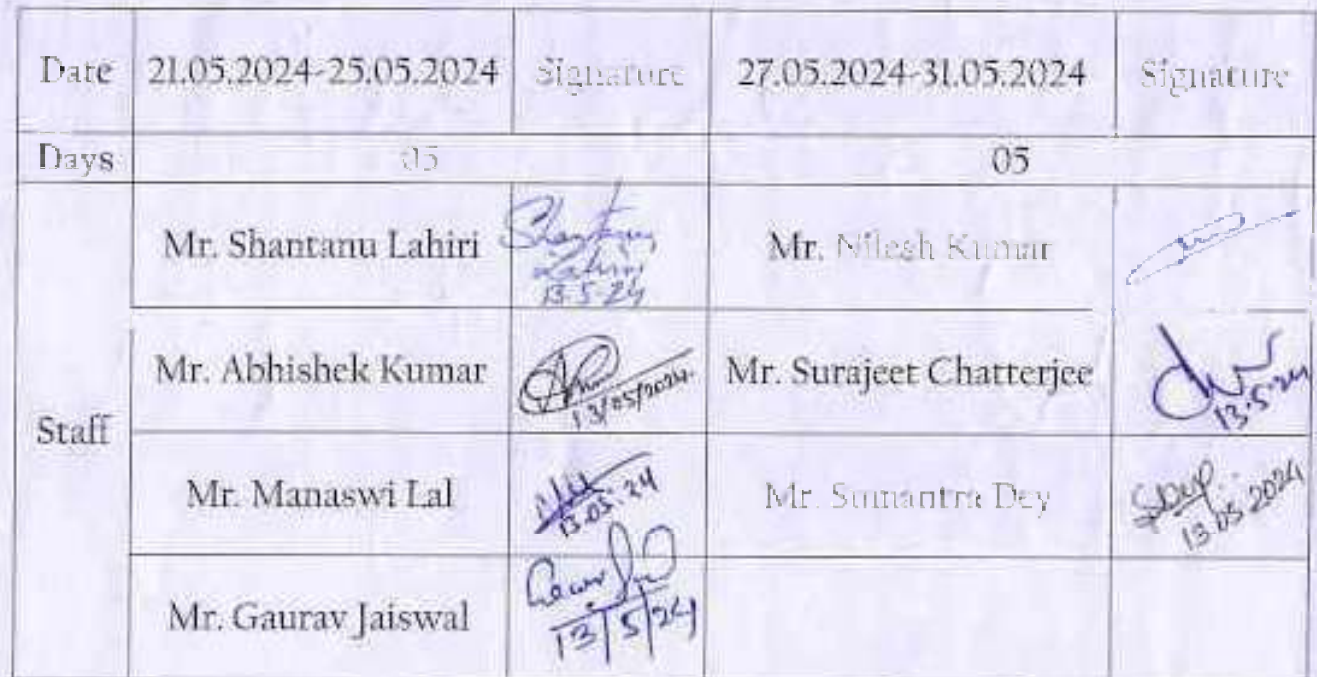 Date 21.05.2024-25.05.2024 Signature 27.05.2024-31.05.2024 Signature
Days 05 05
Staff
Mr. Shantanu Lahiri Shantanu Mr. Nilesh Kumar
Lahiri
13.5.24
Mr. Abhishek Kumar 13/05/2024. Mr. Surajeet Chatterjee 13.5.24
Mr. Manaswi Lal 13.05.24 Mr. Sumantra Dey SDey. 13.05.2024
Mr. Gaurav Jaiswal 13/5/24